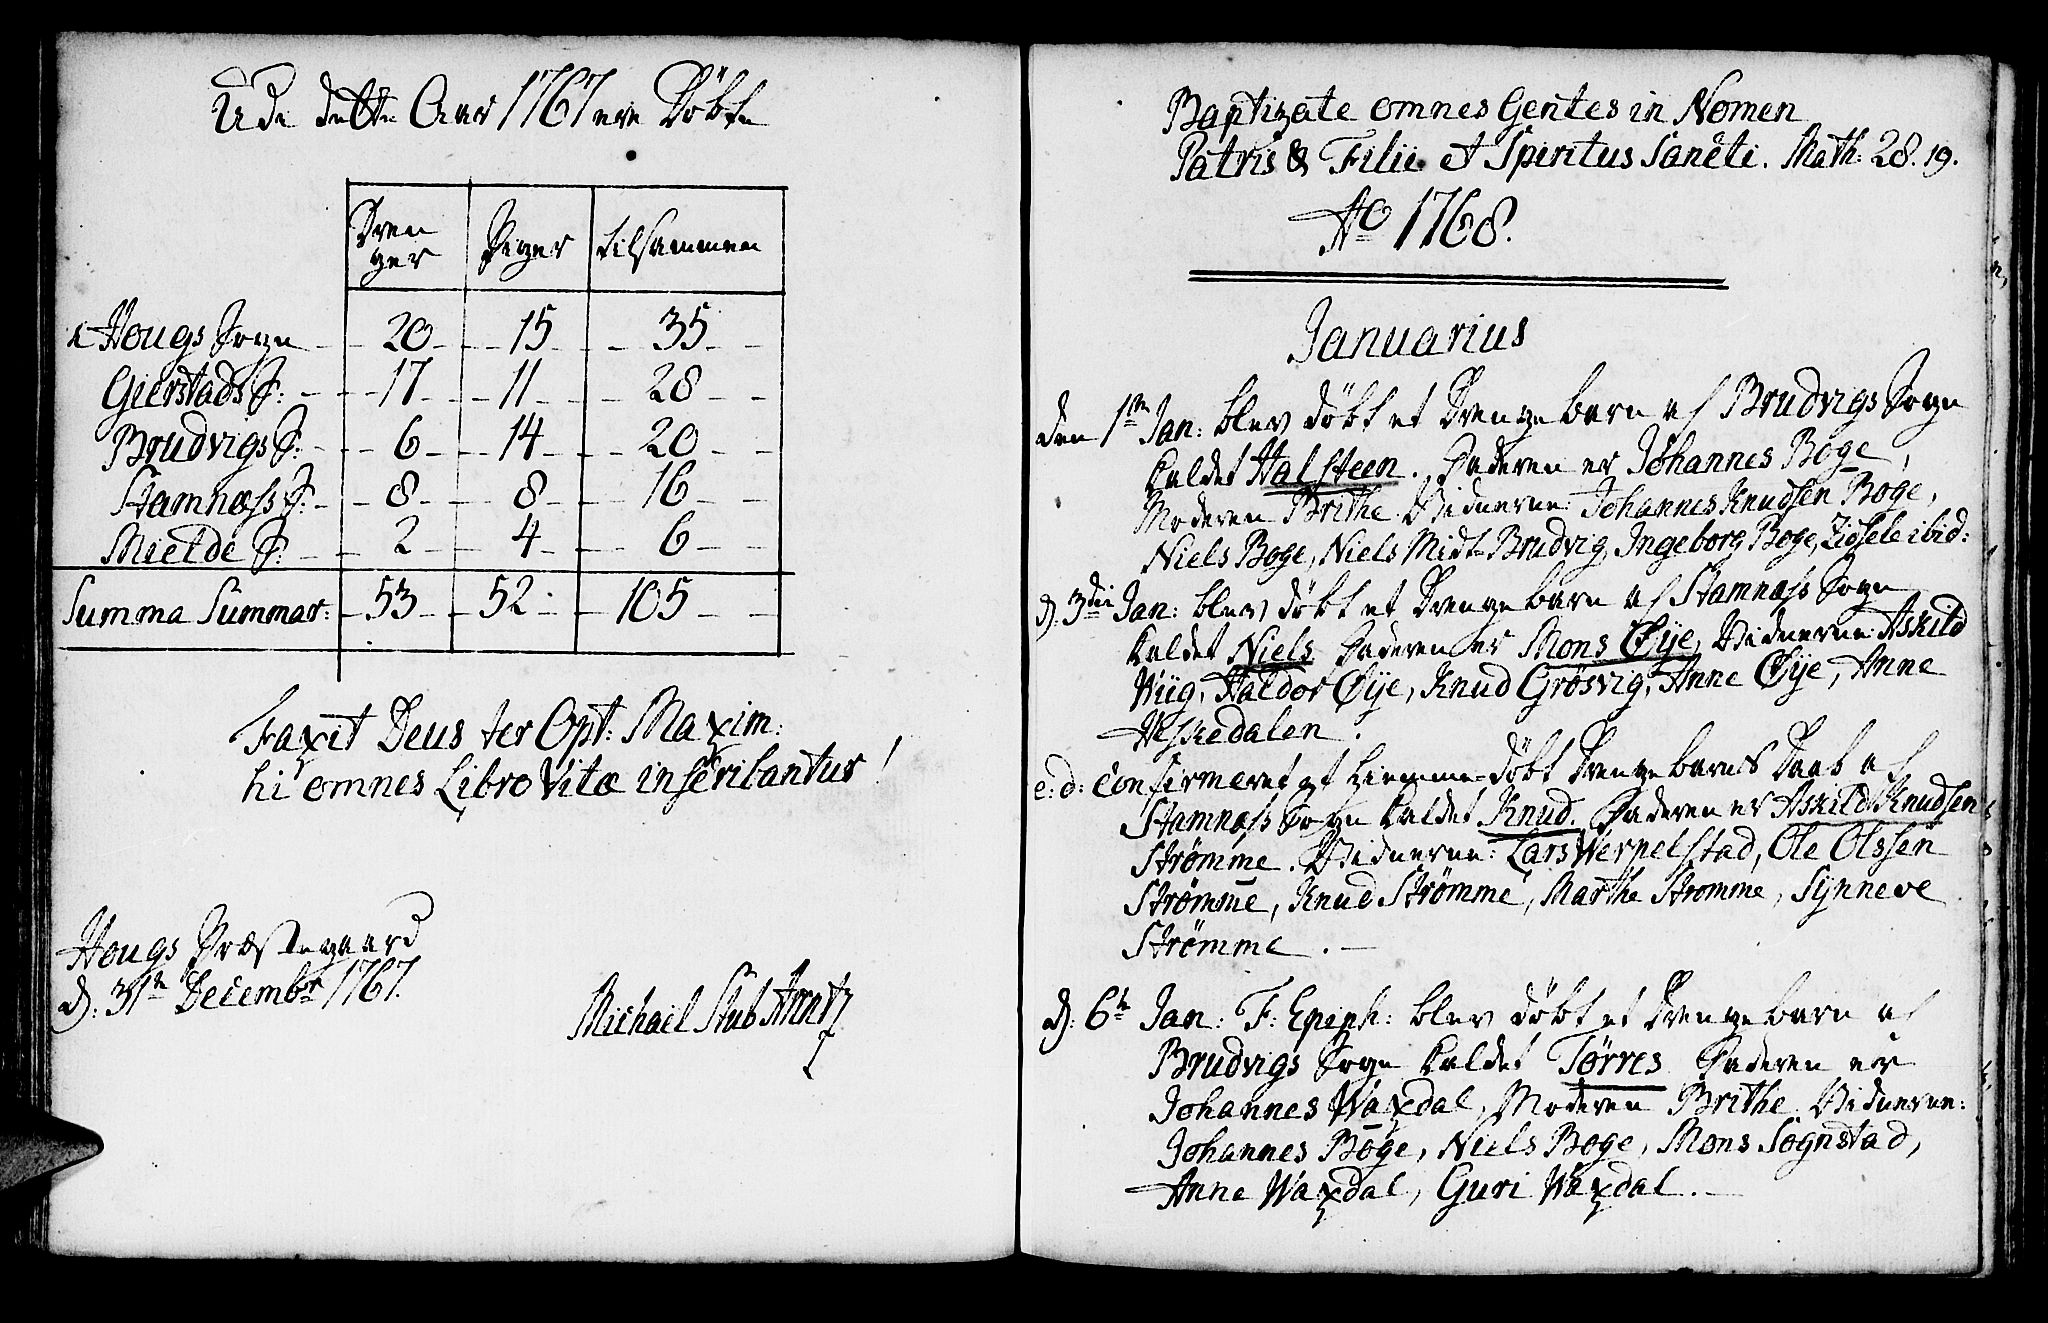 Udi dette Aar 1767 ere Døbte
Dren
ger Piger tilsammen
i Hougs Sogn 20 15 35
Gierstads S: 17 11 28
Brudvigs S: 6 14 20
Stamnæss S: 8 8 16
Mielde S: 2 4 6
Summa Summar: 53 52 105
Faxit Deus ter Opt: Maxim:
hi omnes Libro Vitæ inscribantur!
Hougs Præstegaard
d: 31te Decembr 1767.
Michael Stub Arentz
Baptizate omnes Gentes in Nomen
Patris & Filii et Spiritus Sancti. Math: 28. 19.
Ao 1768.
Januarius
den 1te Jan: blev døbt et Drengebarn af Brudvigs Sogn
kaldet Halsteen. Faderen er Johannes Boge,
Moderen Brithe. Vidnerne: Johannes Knudsen Boge,
Niels Boge, Niels Midt-Brudvig, Ingeborg Boge, Zidsele ibid:
d: 3die Jan: blev døbt et Drengebarn af Stamnæss Sogn
kaldet Niels. Faderen er Mons Øye, Vidnerne: Askild
Wiig, Haldor Øye, Knud Grøsvig, Anne Øye, Anne
Heskedalen.
e: d: Confirmeret et hiemme-døbt Drengebarns Daab af
Stamnæss Sogn kaldet Knud. Faderen er Askild Knudsen
Strømme. Vidnerne: Lars Wernelstad, Ole Olssen
Strømme, Knud Strømme, Marthe Strømme, Synneve
Strømme.
d: 6te Jan: F: Epiph: blev døbt et Drengebarn af
Brudvigs Sogn kaldet Tørres Faderen er
Johannes Waxdal, Moderen Brithe. Vidnerne:
Johannes Boge, Niels Boge, Mons Sognstad,
Anne Waxdal, Guri Waxdal.